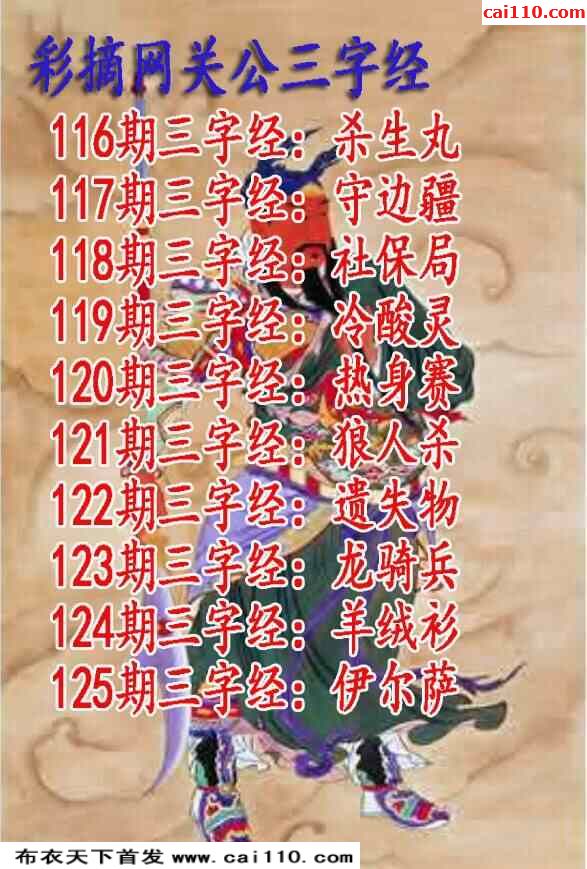 cai110.com
彩摘网关公三字经
116期三字经：杀生丸
117期三字经：守边疆
118期三字经：社保局
119期三字经：冷酸灵
120期三字经：热身赛
121期三字经：狼人杀
122期三字经：遗失物
123期三字经：龙骑兵
124期三字经：羊绒衫
125期三字经：伊尔萨
布衣天下首发 www.cai110.com